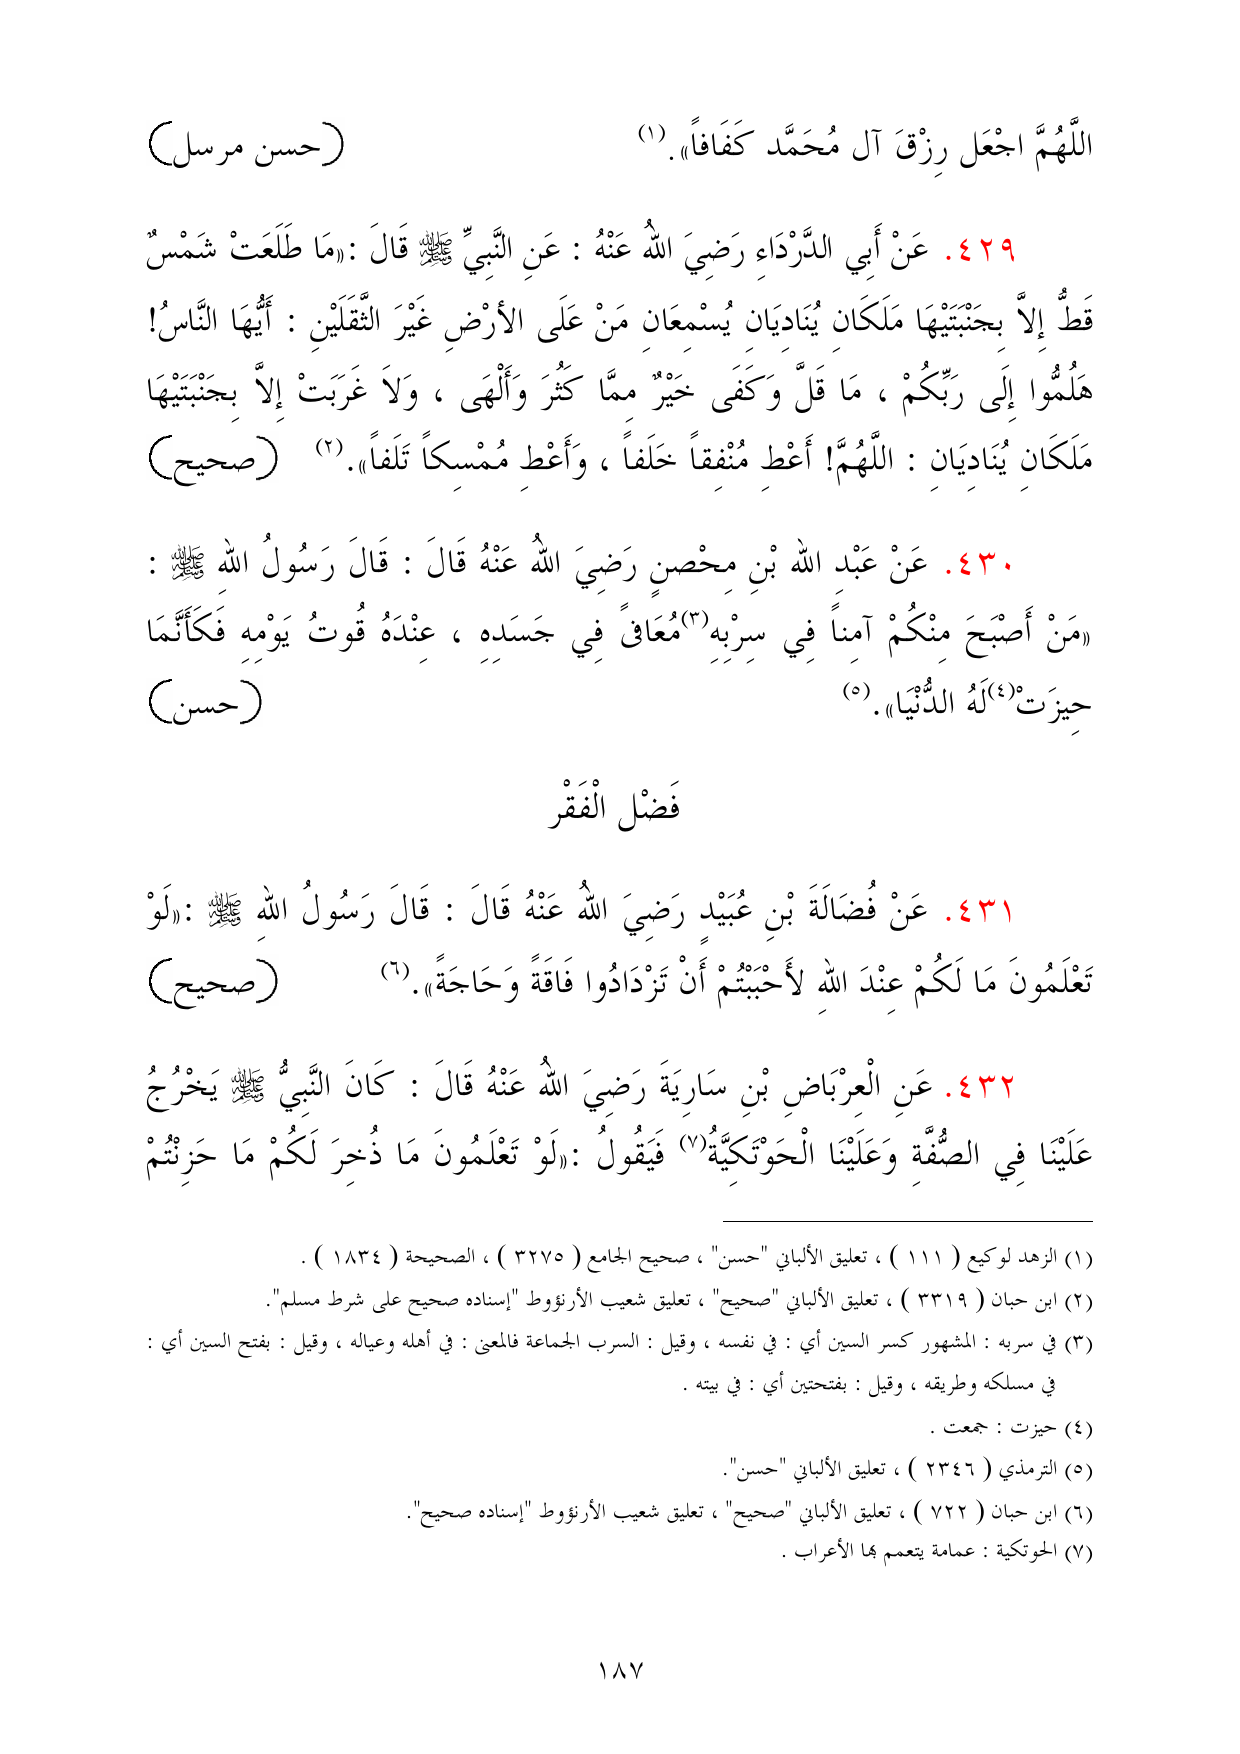 اللَّهُمَّ اجْعَل رِزْقَ آل مُحَمَّد كَفَافاً».(١) (حسن مرسل)
٤٢٩. عَنْ أَبِي الدَّرْدَاءِ رَضِيَ اللهُ عَنْهُ : عَنِ النَّبِيِّ ﷺ قَالَ :«مَا طَلَعَتْ شَمْسٌ
قَطُّ إِلاَّ بِجَنْبَتَيْهَا مَلَكَانِ يُنَادِيَانِ يُسْمِعَانِ مَنْ عَلَى الأرْضِ غَيْرَ الثَّقَلَيْنِ : أَيُّهَا النَّاسُ!
هَلُمُّوا إِلَى رَبِّكُمْ ، مَا قَلَّ وَكَفَى خَيْرٌ مِمَّا كَثُرَ وَأَلْهَى ، وَلاَ غَرَبَتْ إِلاَّ بِجَنْبَتَيْهَا
مَلَكَانِ يُنَادِيَانِ : اللَّهُمَّ! أَعْطِ مُنْفِقاً خَلَفاً ، وَأَعْطِ مُمْسِكاً تَلَفاً».(٢) (صحيح)
٤٣٠. عَنْ عَبْدِ الله بْنِ مِحْصنٍ رَضِيَ اللهُ عَنْهُ قَالَ : قَالَ رَسُولُ اللهِ ﷺ :
«مَنْ أَصْبَحَ مِنْكُمْ آمِناً فِي سِرْبِهِ(٣)مُعَافىً فِي جَسَدِهِ ، عِنْدَهُ قُوتُ يَوْمِهِ فَكَأَنَّمَا
حِيزَتْ(٤)لَهُ الدُّنْيَا».(٥) (حسن)
فَضْل الْفَقْر
٤٣١. عَنْ فُضَالَةَ بْنِ عُبَيْدٍ رَضِيَ اللهُ عَنْهُ قَالَ : قَالَ رَسُولُ اللهِ ﷺ :«لَوْ
تَعْلَمُونَ مَا لَكُمْ عِنْدَ اللهِ لأَحْبَبْتُمْ أَنْ تَزْدَادُوا فَاقَةً وَحَاجَةً».(٦) (صحيح)
٤٣٢. عَنِ الْعِرْبَاضِ بْنِ سَارِيَةَ رَضِيَ اللهُ عَنْهُ قَالَ : كَانَ النَّبِيُّ ﷺ يَخْرُجُ
عَلَيْنَا فِي الصُّفَّةِ وَعَلَيْنَا الْحَوْتَكِيَّةُ(٧) فَيَقُولُ :«لَوْ تَعْلَمُونَ مَا ذُخِرَ لَكُمْ مَا حَزِنْتُمْ
(١) الزهد لوكيع ( ١١١ ) ، تعليق الألباني "حسن" ، صحيح الجامع ( ٣٢٧٥ ) ، الصحيحة ( ١٨٣٤ ) .
(٢) ابن حبان ( ٣٣١٩ ) ، تعليق الألباني "صحيح" ، تعليق شعيب الأرنؤوط "إسناده صحيح على شرط مسلم".
(٣) في سربه : المشهور كسر السين أي : في نفسه ، وقيل : السرب الجماعة فالمعنى : في أهله وعياله ، وقيل : بفتح السين أي :
في مسلكه وطريقه ، وقيل : بفتحتين أي : في بيته .
(٤) حيزت : جمعت .
(٥) الترمذي ( ٢٣٤٦ ) ، تعليق الألباني "حسن".
(٦) ابن حبان ( ٧٢٢ ) ، تعليق الألباني "صحيح" ، تعليق شعيب الأرنؤوط "إسناده صحيح".
(٧) الحوتكية : عمامة يتعمم بها الأعراب .
١٨٧